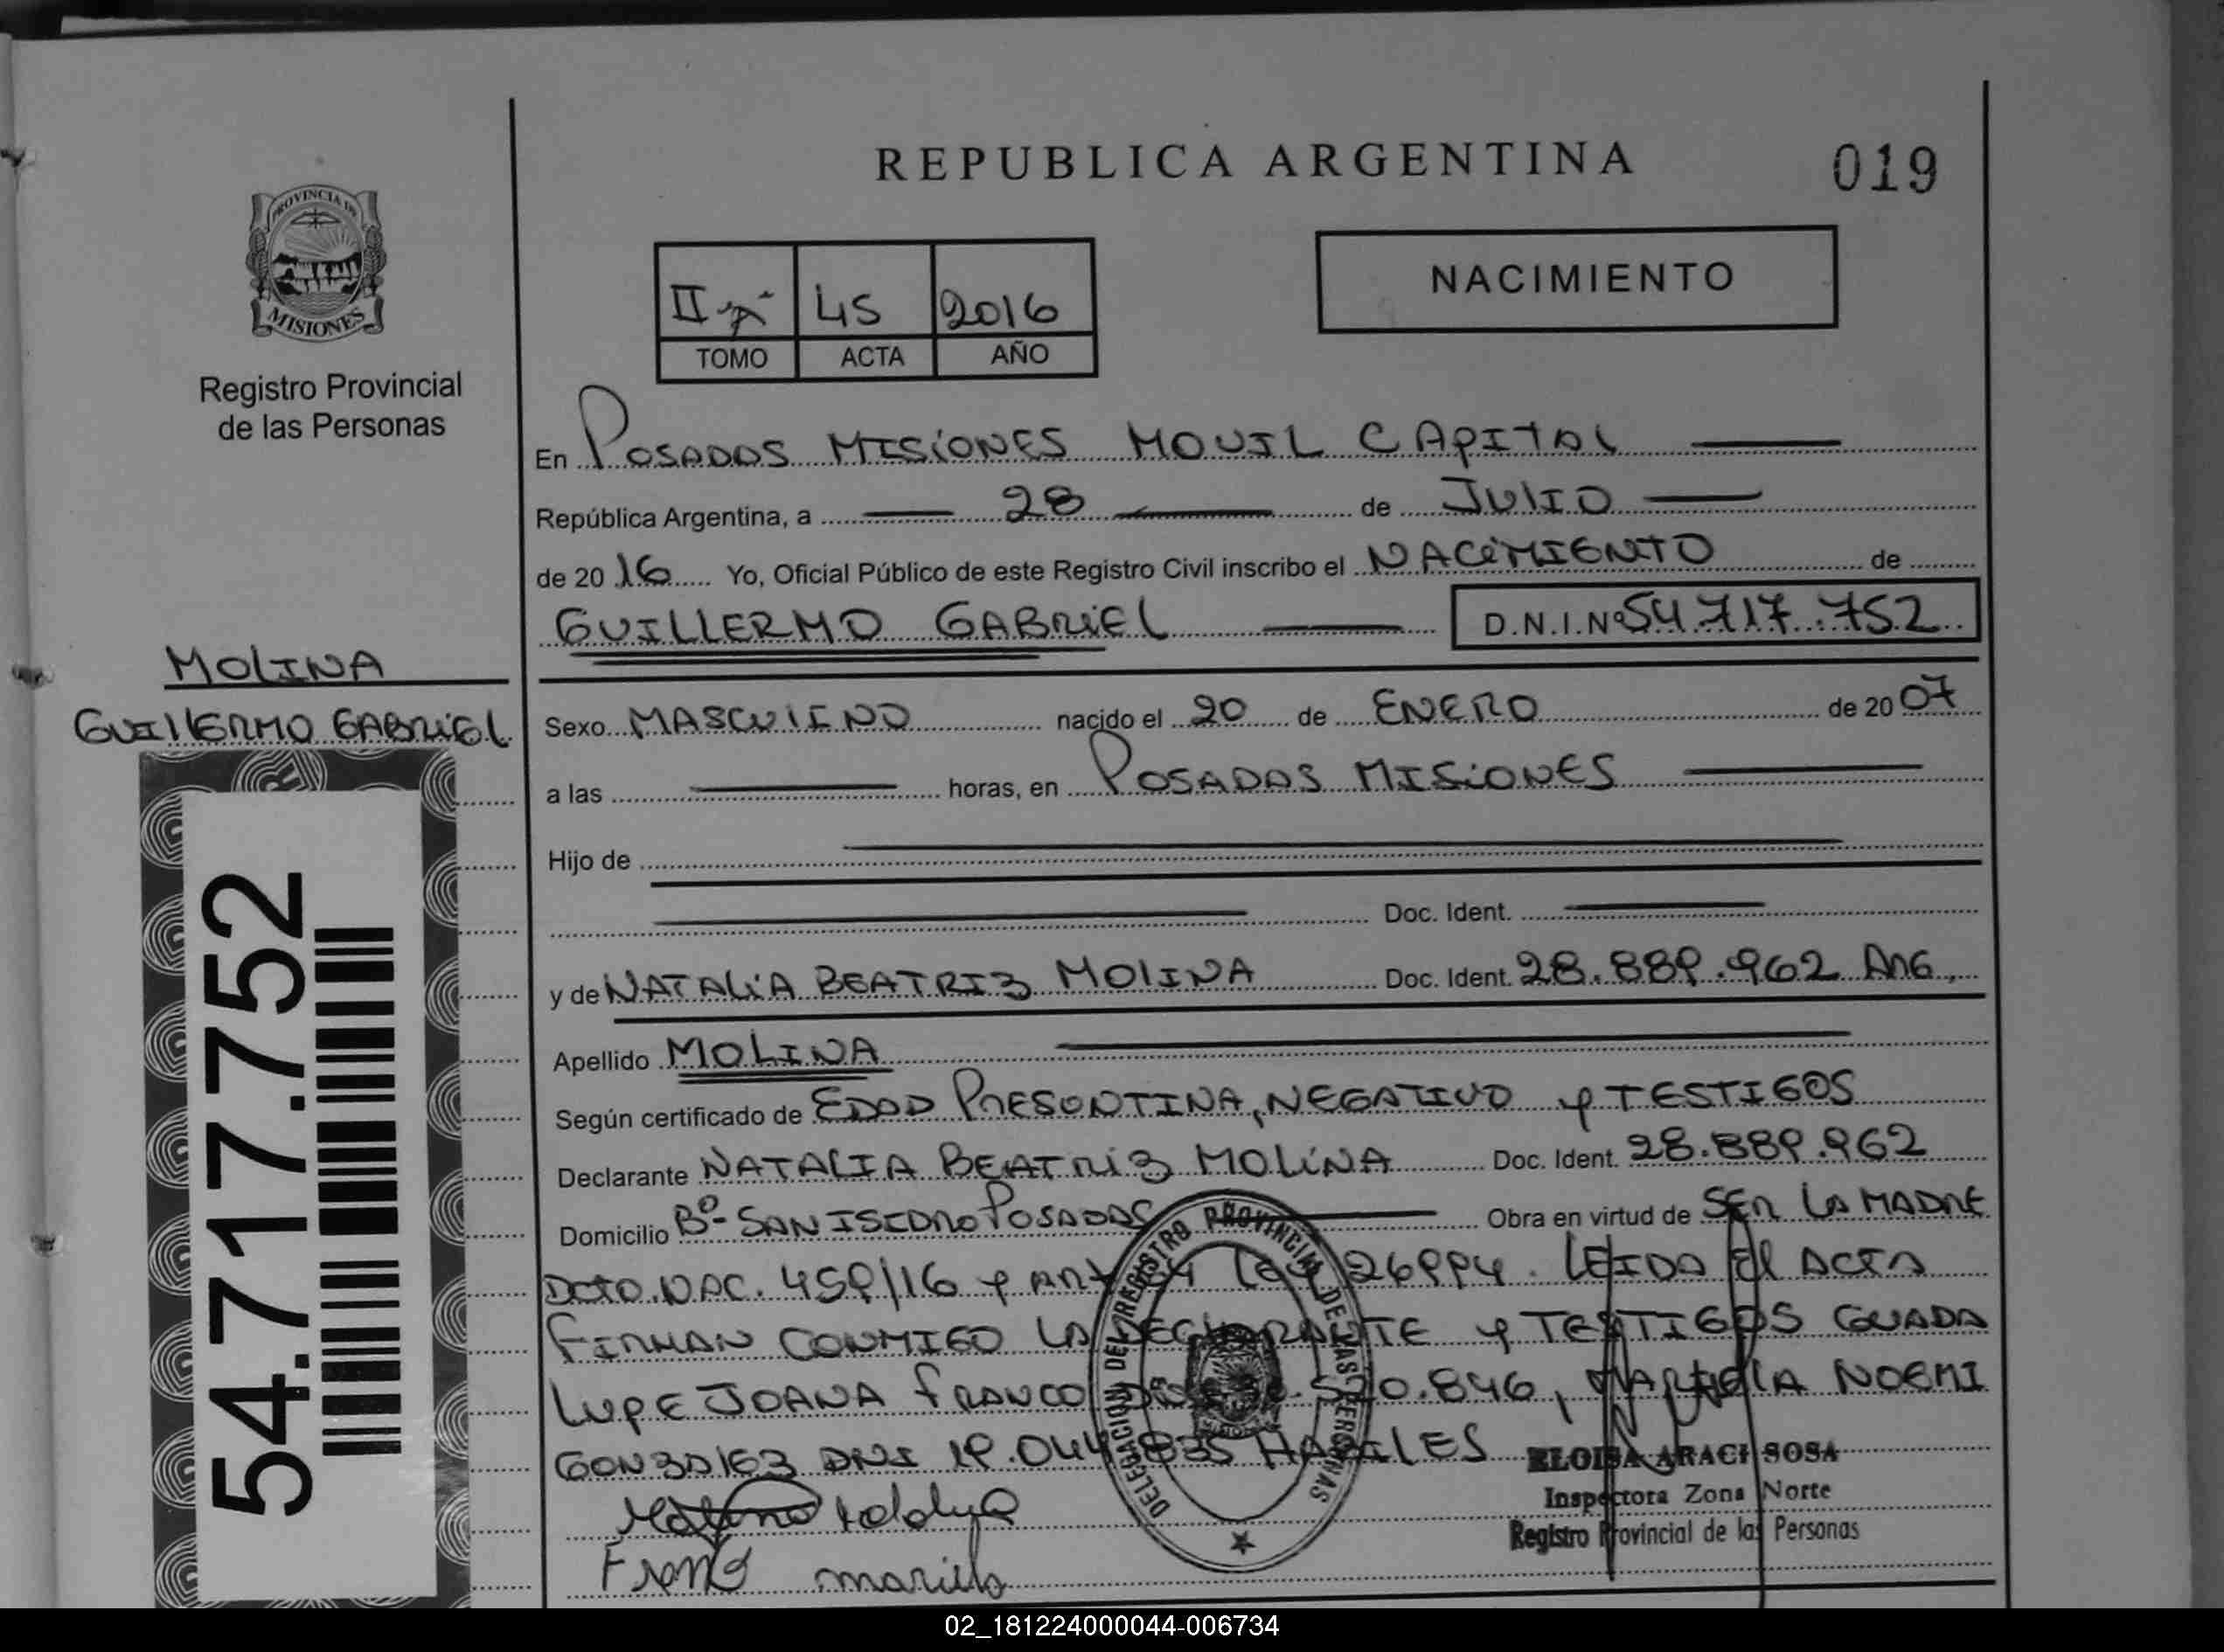 REPUBLICA ARGENTINA
019
PROVINCIA DE
MISIONES
Registro Provincial
de las Personas
NACIMIENTO
II-A- 45 2016
TOMO ACTA AÑO
En POSADAS MISIONES MOVIL CAPITAL
República Argentina, a 28 de JULIO
de 2016 Yo, Oficial Público de este Registro Civil inscribo el NACIMIENTO de
GUILLERMO GABRIEL D.N.I.Nº54.717.752
MOLINA
GUILLERMO GABRIEL
Sexo MASCULINO nacido el 20 de ENERO de 2007
a las horas, en POSADAS MISIONES
Hijo de
Doc. Ident.
y de NATALIA BEATRIZ MOLINA Doc. Ident. 28.889.962 ARG
Apellido MOLINA
Según certificado de EDAD PRESUNTIVA, NEGATIVO y TESTIGOS
Declarante NATALIA BEATRIZ MOLINA Doc. Ident. 28.889.962
Domicilio Bº- SAN ISIDRO POSADAS Obra en virtud de SER LA MADRE
DCTO.NAC. 459/16 y ART Ley 26994. LEIDA El ACTA
FIRMAN CONMIGO LA DECLARANTE y TESTIGOS GUADA
LUPE JOANA FRANCO .520.846, MARIELA NOEMI
GONZALEZ DNI 19.044.835 HABILES
54.717.752
DELEGACION DEL REGISTRO PROVINCIAL DE LAS PERSONAS
ELOISA ARACI SOSA
Inspectora Zona Norte
Registro Provincial de las Personas
02_181224000044-006734